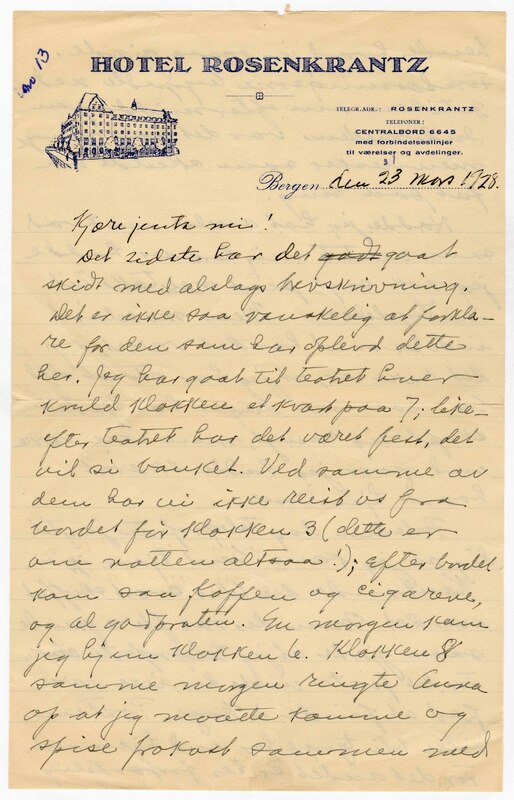 13
HOTEL ROSENKRANTZ
TELEGR.ADR.: ROSENKRANTZ
TELEFONER:
CENTRALBORD 6645
med forbindelseslinjer
til værelser og avdelinger.
Bergen den 23 mars 1928.
Kjære jenta mi!
Det sidste har det godt gaat
skidt med alslags brevskrivning.
Det er ikke saa vanskelig at forkla-
re for den som har oplevd dette
her. Jeg har gaat til teatret hver
kveld klokken et kvart paa 7; like-
efter teatret har det været fest, det
vil si banket. Ved somme av
dem har vi ikke reist os fra
bordet før klokken 3 (dette er
om natten altsaa!); efter bordet
kom saa kaffen og cigarene,
og al godpraten. En morgen kam
jeg hjem klokken 6. Klokken 8
samme morgen ringte Anna
op at jeg maatte komme og
spise frokost sammen med